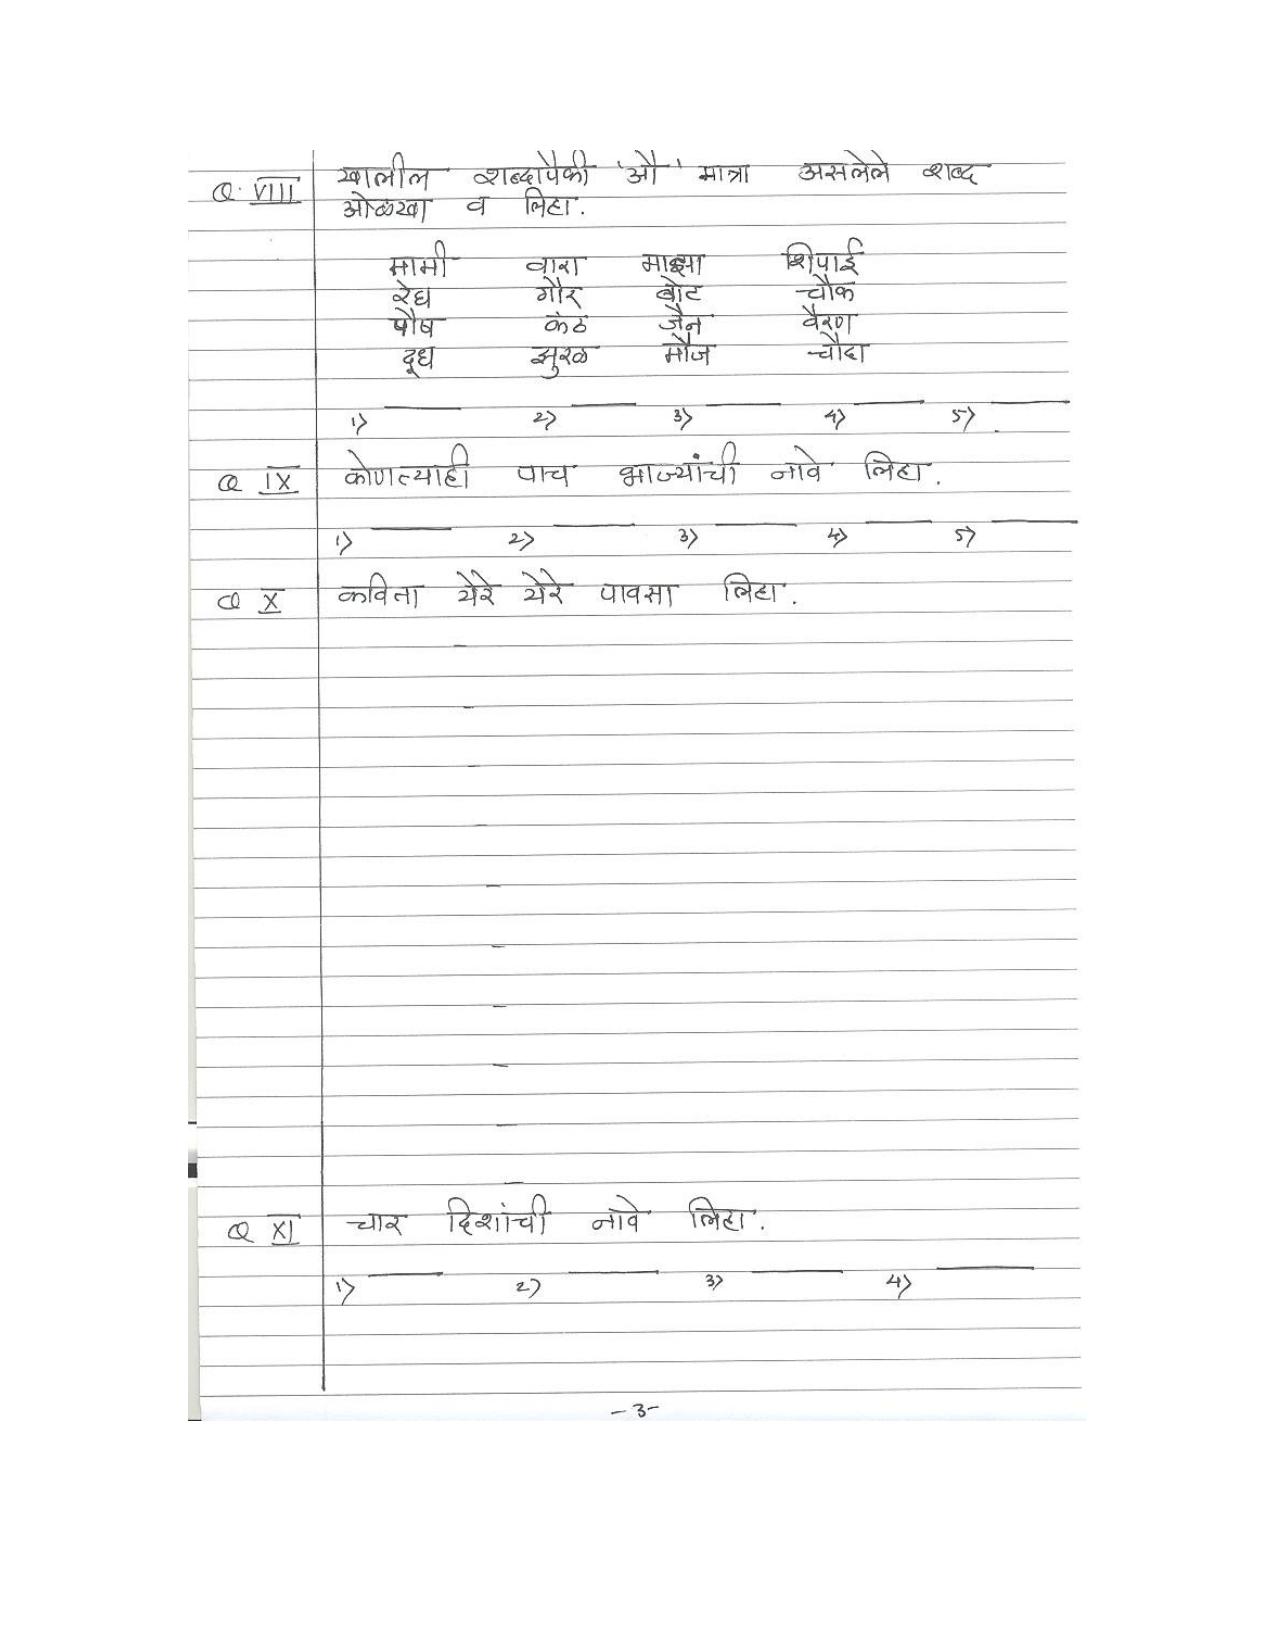 Q. VIII खालील शब्दापैकी 'औ' मात्रा असलेले शब्द
ओळखा व लिहा.
मामी वारा माझा शिपाई
रेघ गौर बोट चौक
पौष कंठ जैन वैरण
दूध झुरळ मौज चौदा
1) ____ 2) ____ 3) ____ 4) ____ 5) ____.
Q IX कोणत्याही पाच भाज्यांची नावे लिहा.
1) ____ 2) ____ 3) ____ 4) ____ 5) ____
Q X कविता येरे येरे पावसा लिहा.
Q XI चार दिशांची नावे लिहा.
1) ____ 2) ____ 3) ____ 4) ____
-3-